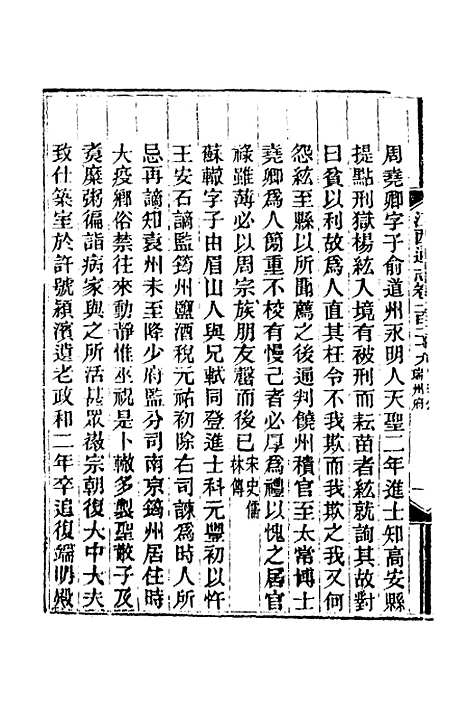 周堯卿字子俞道州永明人天聖二年進士知高安縣
提點刑獄楊紘入境有被刑而耘苗者紘就詢其故對
曰貧以利故爲人直其枉令不我欺而我欺之我又何
怨紘至縣以所聞薦之後通判饒州積官至太常博士
堯卿爲人簡重不校有慢己者必厚爲禮以愧之居官
祿雖薄必以周宗族朋友罄而後已宋史儒林傳
蘇轍字子由眉山人與兄軾同登進士科元豐初以忤
王安石謫監筠州鹽酒稅元祐初除右司諫爲時人所
忌再謫知袁州未至降少府監分司南京筠州居住時
大疫鄉俗禁往來動靜惟巫祝是卜轍多製聖散子及
煑糜粥徧詣病家與之所活甚眾徽宗朝復大中大夫
致仕築室於許號潁濱遺老政和二年卒追復端明殿
江西通志卷一百二十九
瑞州府
一